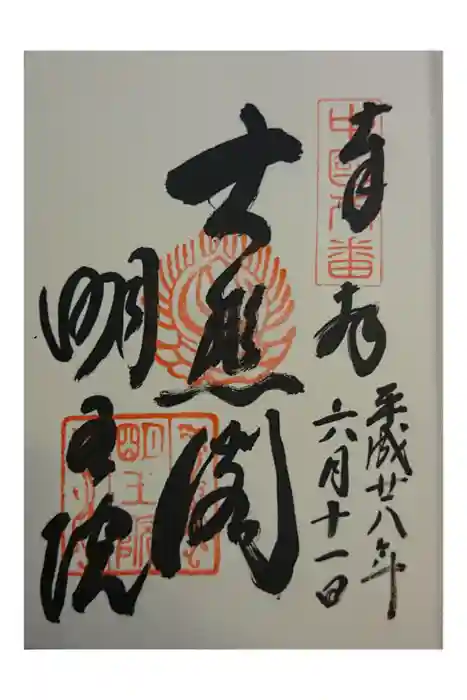 奉拝
中國八番
平成廿八年
六月十一日
大悲閣
明王院